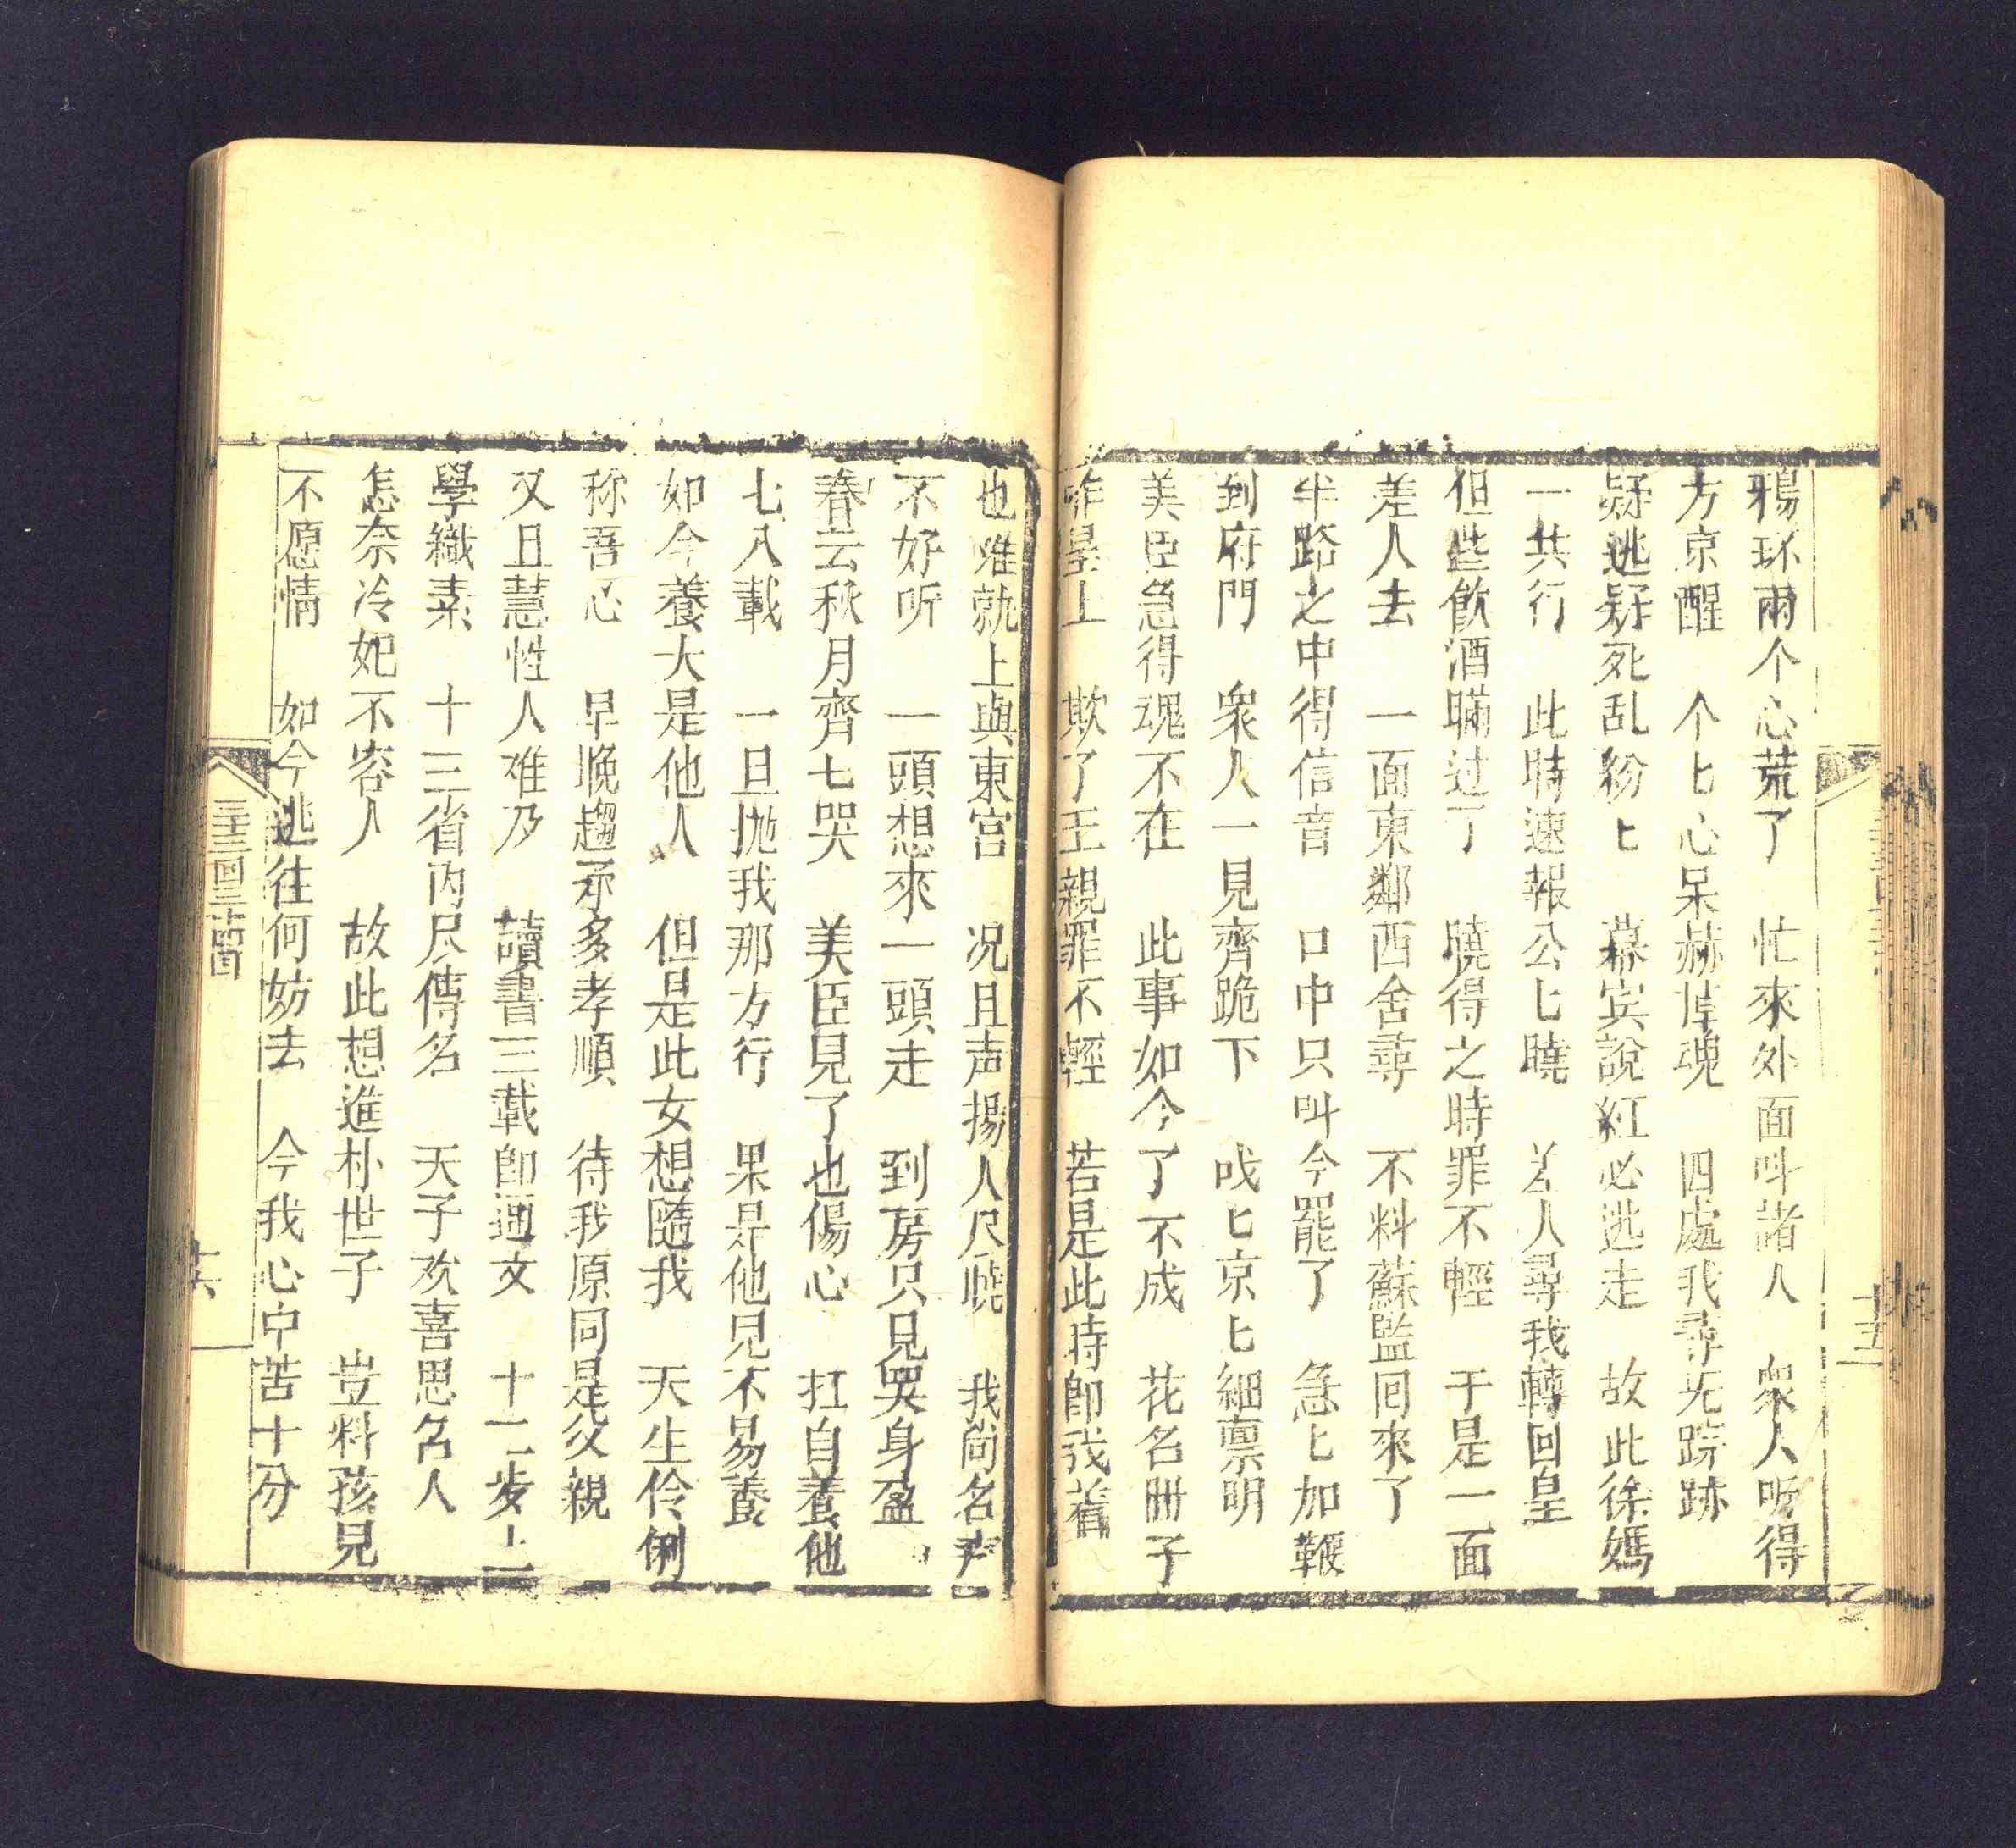 鴉环兩个心荒了　忙來外面叫諸人　衆人听得
方京醒　个匕心呆赫掉魂　四處我尋无踪跡
疑逃疑死乱紛匕　幕宾說紅必逃走　故此徐媽
一共行　此時速報公匕曉　差人尋我轉回皇
但些飲酒瞞过了　曉得之時罪不輕　于是一面
差人去　一面東鄰西舍尋　不料蘇監囘來了
半路之中得信音　口中只叫今罷了　急匕加鞭
到府門　衆人一見齊跪下　战匕京匕細禀明
美臣急得魂不在　此事如今了不成　花名册子
昨呈上　欺了王親罪不輕　若是此時卽我着
也难就上與東宫　况且声揚人尽曉　我尚名声
不好听　一頭想來一頭走　到房只見哭身盈
春云秋月齊七哭　美臣見了也傷心　扛自養他
七八載　一旦抛我那方行　果是他兄不易養
如今養大是他人　但是此女想隨我　天生伶俐
称吾心　早晚趨承多孝順　待我原同是父親
又且慧性人难乃　讀書三載卽通文　十一步上
學織素　十三省内尽傳名　天子欢喜思名人
怎奈冷妃不容人　故此想進朴世子　豈料孩兒
不愿情　如今逃往何妨去　今我心中苦十分
三十三回
十六
十五